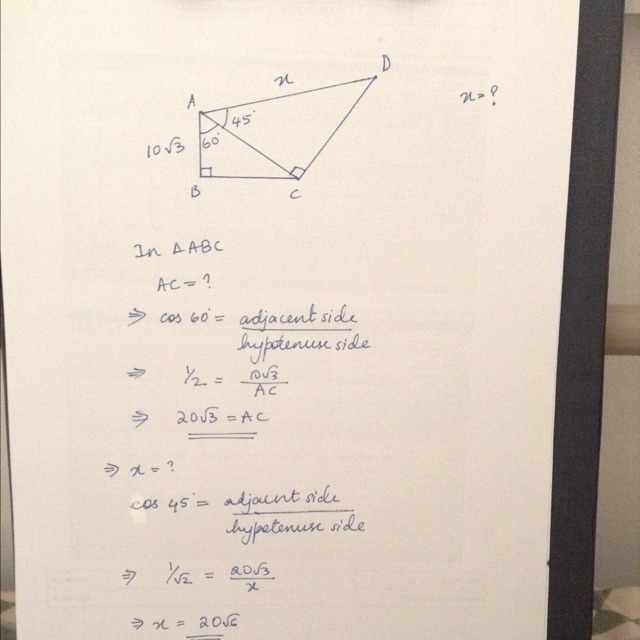 D
x
x = ?
A
45°
10√3
60°
B
C
In △ABC
AC = ?
⇒ cos 60° = adjacent side
hypotenuse side
⇒ 1/2 = 10√3
AC
⇒ 20√3 = AC
⇒ x = ?
cos 45° = adjacent side
hypotenuse side
⇒ 1/√2 = 20√3
x
⇒ x = 20√6